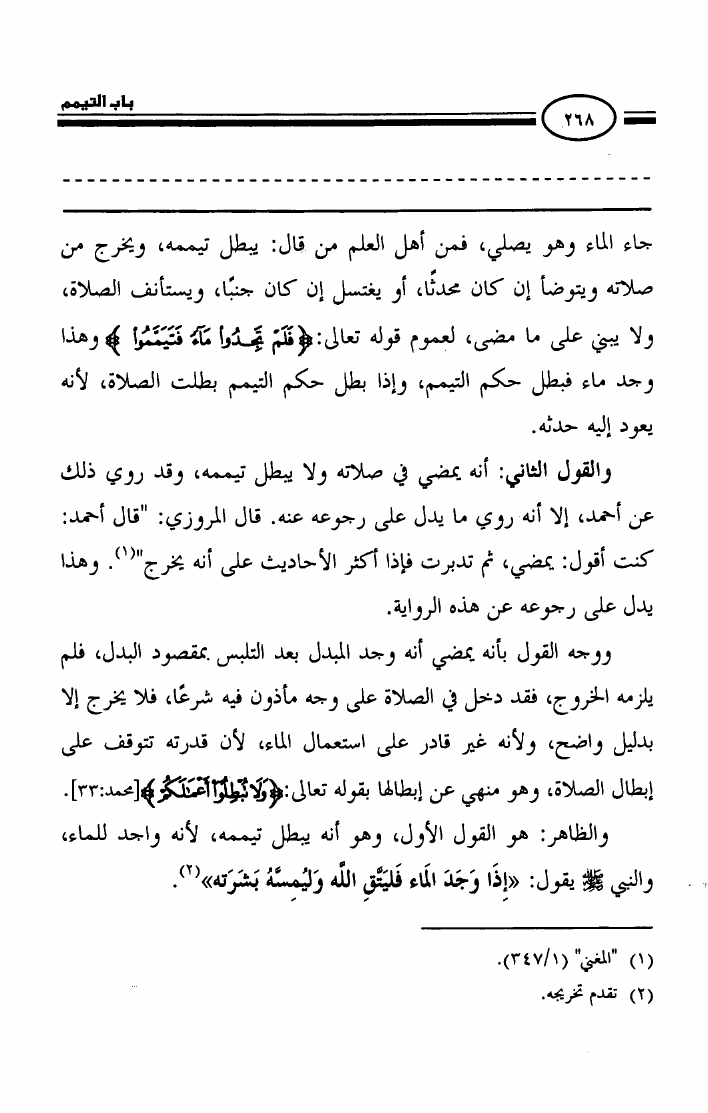 باب التيمم
٢٦٨
جاء الماء وهو يصلي، فمن أهل العلم من قال: يبطل تيممه، ويخرج من
صلاته ويتوضأ إن كان محدثًا، أو يغتسل إن كان جنبًا، ويستأنف الصلاة،
ولا يبني على ما مضى، لعموم قوله تعالى: ﴿فَلَمْ تَجِدُوا مَآءً فَتَيَمَّمُوا﴾ وهذا
وجد ماء فبطل حكم التيمم، وإذا بطل حكم التيمم بطلت الصلاة، لأنه
يعود إليه حدثه.
والقول الثاني: أنه يمضي في صلاته ولا يبطل تيممه، وقد روي ذلك
عن أحمد، إلا أنه روي ما يدل على رجوعه عنه. قال المروزي: "قال أحمد:
كنت أقول: يمضي، ثم تدبرت فإذا أكثر الأحاديث على أنه يخرج"(١). وهذا
يدل على رجوعه عن هذه الرواية.
ووجه القول بأنه يمضي أنه وجد المبدل بعد التلبس بمقصود البدل، فلم
يلزمه الخروج، فقد دخل في الصلاة على وجه مأذون فيه شرعًا، فلا يخرج إلا
بدليل واضح، ولأنه غير قادر على استعمال الماء، لأن قدرته تتوقف على
إبطال الصلاة، وهو منهي عن إبطالها بقوله تعالى: ﴿وَلَا تُبْطِلُوٓا۟ أَعْمَـٰلَكُمْ﴾ [محمد:٣٣].
والظاهر: هو القول الأول، وهو أنه يبطل تيممه، لأنه واجد للماء،
والنبي ﷺ يقول: «إِذَا وَجَدَ الْمَاء فَليَتَّقِ اللَّه وَليُمِسَّهُ بَشَرَته»(٢).
(١) "المغني" (٣٤٧/١).
(٢) تقدم تخريجه.